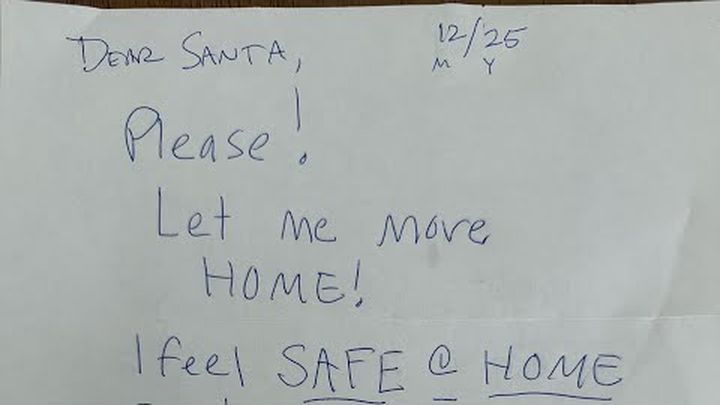 DEAR SANTA,
12/25
M Y
Please!
Let me move
HOME!
I feel SAFE @ HOME